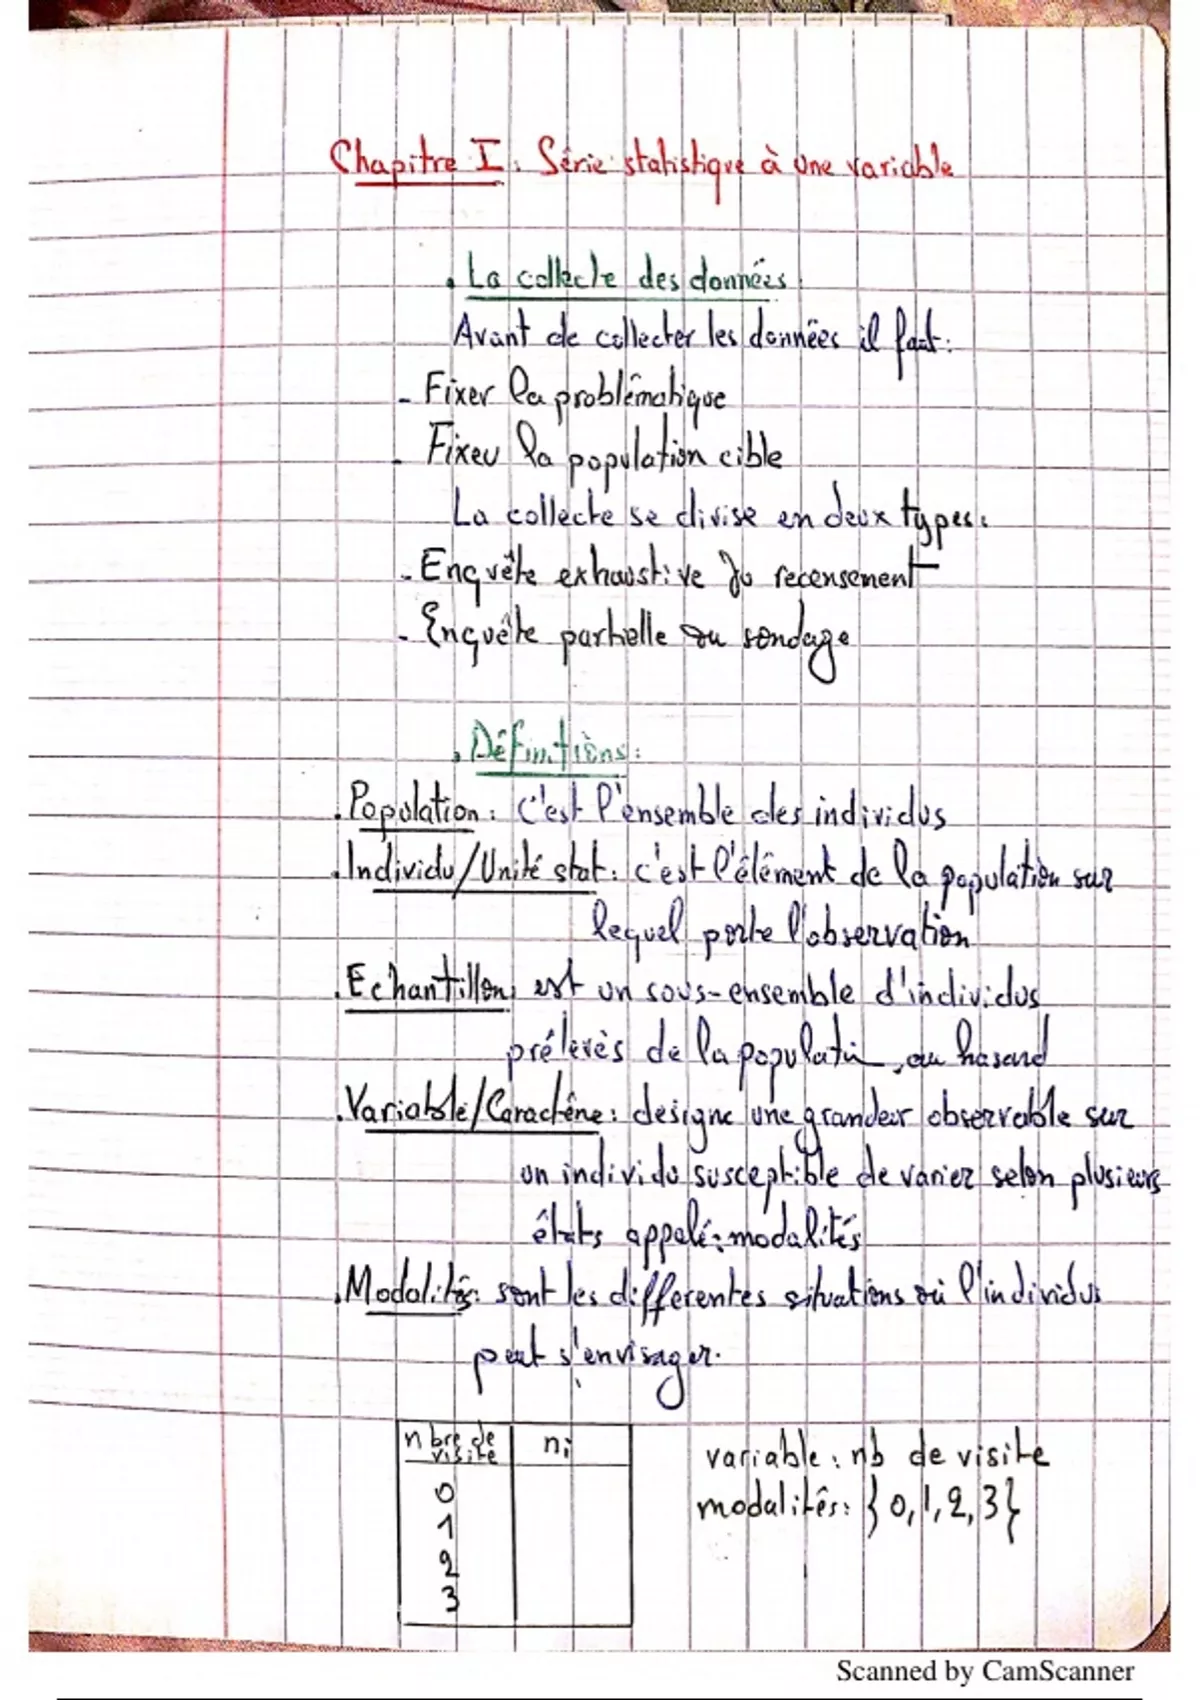 Chapitre I : Série statistique à une variable
. La collecte des données :
Avant de collecter les données il faut :
- Fixer la problématique
- Fixeu la population cible
La collecte se divise en deux types :
- Enquête exhaustive ou recensement
- Enquête partielle ou sondage
. Définitions :
. Population : c'est l'ensemble des individus
. Individu/Unité stat : c'est l'élément de la population sur
lequel porte l'observation
. Echantillon : est un sous-ensemble d'individus
prélevés de la population, au hasard
. Variable/Caractère : designe une grandeur observable sur
un individu susceptible de varier selon plusieurs
états appelé : modalités
. Modalités : sont les differentes situations où l'individus
peut s'envisager.
nbre de visite ni
0
1
2
3
variable : nb de visite
modalités : {0,1,2,3}
Scanned by CamScanner